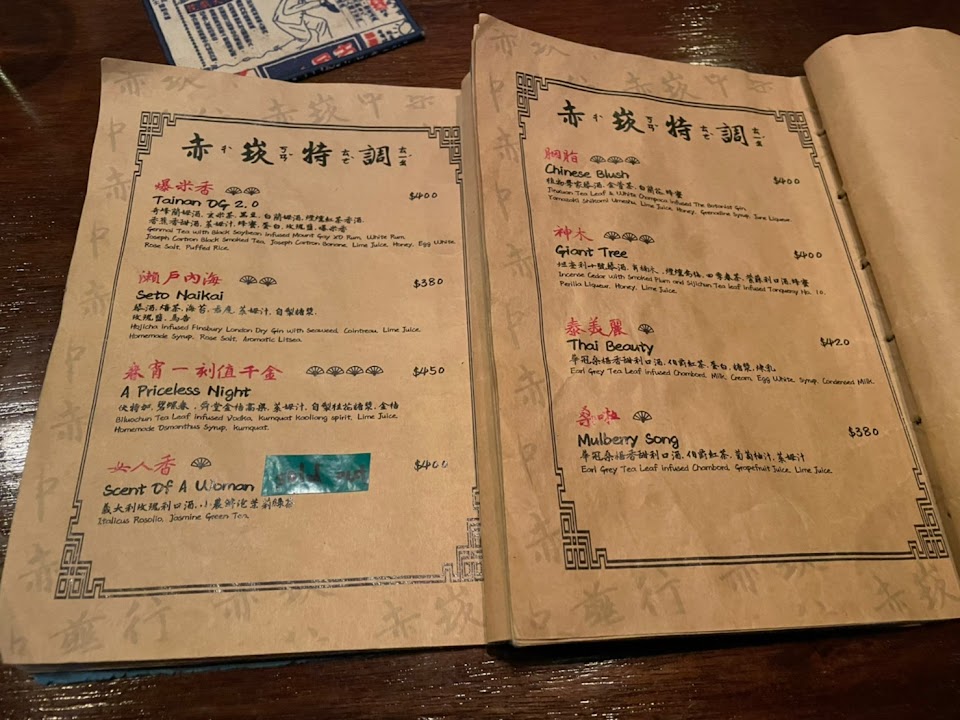 赤ㄔˋ崁ㄎㄢˋ特ㄊㄜˋ調ㄊㄧㄠˊ
爆米香
$400
Tainan OG 2.0
奇峰蘭姆酒、玄米茶、黑豆、白蘭姆酒、煙燻紅茶香酒、
香蕉香甜酒、萊姆汁、蜂蜜、蛋白、玫瑰鹽、爆米香
Genmai Tea with Black Soybean infused Mount Gay XO Rum, White Rum,
Joseph Cartron Black Smoked Tea, Joseph Cartron Banane, Lime Juice, Honey, Egg White,
Rose Salt, Puffed Rice.
瀨戶內海
$380
Seto Naikai
琴酒、焙茶、海苔、君度、萊姆汁、自製糖漿、
玫瑰鹽、馬告
Hojicha infused Finsbury London Dry Gin with Seaweed, Cointreau, Lime Juice,
Homemade Syrup, Rose Salt, Aromatic Litsea.
春宵一刻值千金
$450
A Priceless Night
伏特加、碧螺春、金柚高粱、萊姆汁、自製桂花糖漿、金桔
Biluochun Tea Leaf infused Vodka, Kumquat Kaoliang spirit, Lime Juice,
Homemade Osmanthus Syrup, Kumquat.
女人香
$400
Scent Of A Woman
義大利玫瑰利口酒、小農鮮泡茉莉綠茶
Italicus Rosolio, Jasmine Green Tea
赤ㄔˋ崁ㄎㄢˋ特ㄊㄜˋ調ㄊㄧㄠˊ
胭脂
Chinese Blush
$400
植物學家琴酒、金萱茶、白蘭花、蜂蜜
Jinxuan Tea Leaf & White Champaca infused The Botanist Gin,
Yamazaki Shikomi Umeshu, Lime Juice, Honey, Grenadine Syrup, June Liqueur.
神木
Giant Tree
$400
坦奎利十號琴酒、肖楠木、煙燻烏梅、四季春茶、紫蘇利口酒、蜂蜜
Incense Cedar with Smoked Plum and Sijichun Tea leaf infused Tanqueray No. 10,
Perilla Liqueur, Honey, Lime Juice.
泰美麗
Thai Beauty
$420
華冠桑椹香甜利口酒、伯爵紅茶、蛋白、糖漿、烤乳
Earl Grey Tea Leaf infused Chambord, Milk, Cream, Egg White, Syrup, Condensed Milk.
桑啦
Mulberry Song
$380
華冠桑椹香甜利口酒、伯爵紅茶、葡萄柚汁、萊姆汁
Earl Grey Tea Leaf infused Chambord, Grapefruit Juice, Lime Juice.